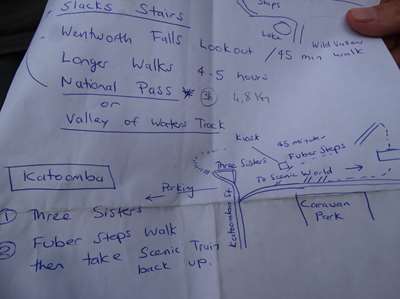 Slacks Stairs
Steps
Lake
Wentworth Falls Lookout / 45 min walk
Longer Walks 4-5 hours
National Pass * 3B 4,8 Km
or
Valley of Waters Track
Katoomba
Kiosk
45 minutes
Fuber Steps
Three Sisters
To Scenic World
Parking
Katoomba St
Caravan
Park
① Three Sisters
② Fuber Steps Walk
then take Scenic Train
back up.